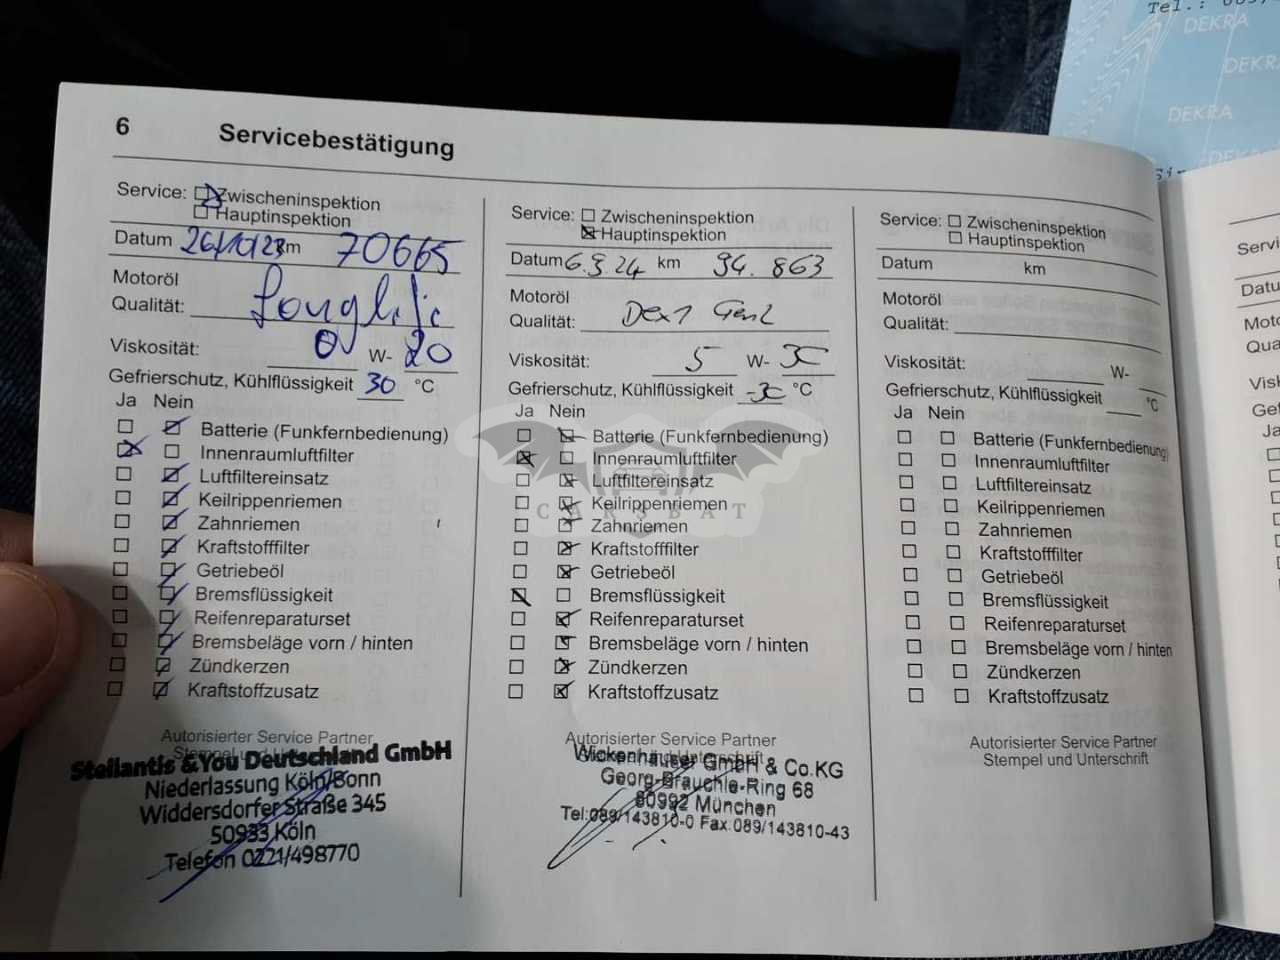 Tel.:
DEKRA
DEKRA
DEKRA
DEKRA
6 Servicebestätigung
Service: Zwischeninspektion
Hauptinspektion
Datum 26/10/23 km 70665
Motoröl
Qualität: Longlife
Viskosität: 0 W- 20
Gefrierschutz, Kühlflüssigkeit 30 °C
Ja Nein
Batterie (Funkfernbedienung)
Innenraumluftfilter
Luftfiltereinsatz
Keilrippenriemen
Zahnriemen
Kraftstofffilter
Getriebeöl
Bremsflüssigkeit
Reifenreparaturset
Bremsbeläge vorn / hinten
Zündkerzen
Kraftstoffzusatz
Autorisierter Service Partner
Stempel und Unterschrift
Stellantis &You Deutschland GmbH
Niederlassung Köln/Bonn
Widdersdorfer Straße 345
50933 Köln
Telefon 0221/498770
Service: Zwischeninspektion
Hauptinspektion
Datum 6.9.24 km 94.863
Motoröl
Qualität: Dex1 Gen2
Viskosität: 5 W- 30
Gefrierschutz, Kühlflüssigkeit -30 °C
Ja Nein
Batterie (Funkfernbedienung)
Innenraumluftfilter
Luftfiltereinsatz
Keilrippenriemen
CARSBAT
Zahnriemen
Kraftstofffilter
Getriebeöl
Bremsflüssigkeit
Reifenreparaturset
Bremsbeläge vorn / hinten
Zündkerzen
Kraftstoffzusatz
Autorisierter Service Partner
Stempel und Unterschrift
Wickenhäuser GmbH & Co.KG
Georg-Brauchle-Ring 68
80992 München
Tel:089/143810-0 Fax:089/143810-43
Service: Zwischeninspektion
Hauptinspektion
Datum km
Motoröl
Qualität:
Viskosität: W-
Gefrierschutz, Kühlflüssigkeit °C
Ja Nein
Batterie (Funkfernbedienung)
Innenraumluftfilter
Luftfiltereinsatz
Keilrippenriemen
Zahnriemen
Kraftstofffilter
Getriebeöl
Bremsflüssigkeit
Reifenreparaturset
Bremsbeläge vorn / hinten
Zündkerzen
Kraftstoffzusatz
Autorisierter Service Partner
Stempel und Unterschrift